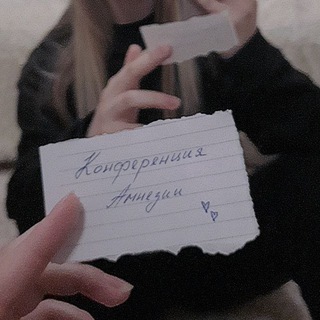 Конференция
Амнезии